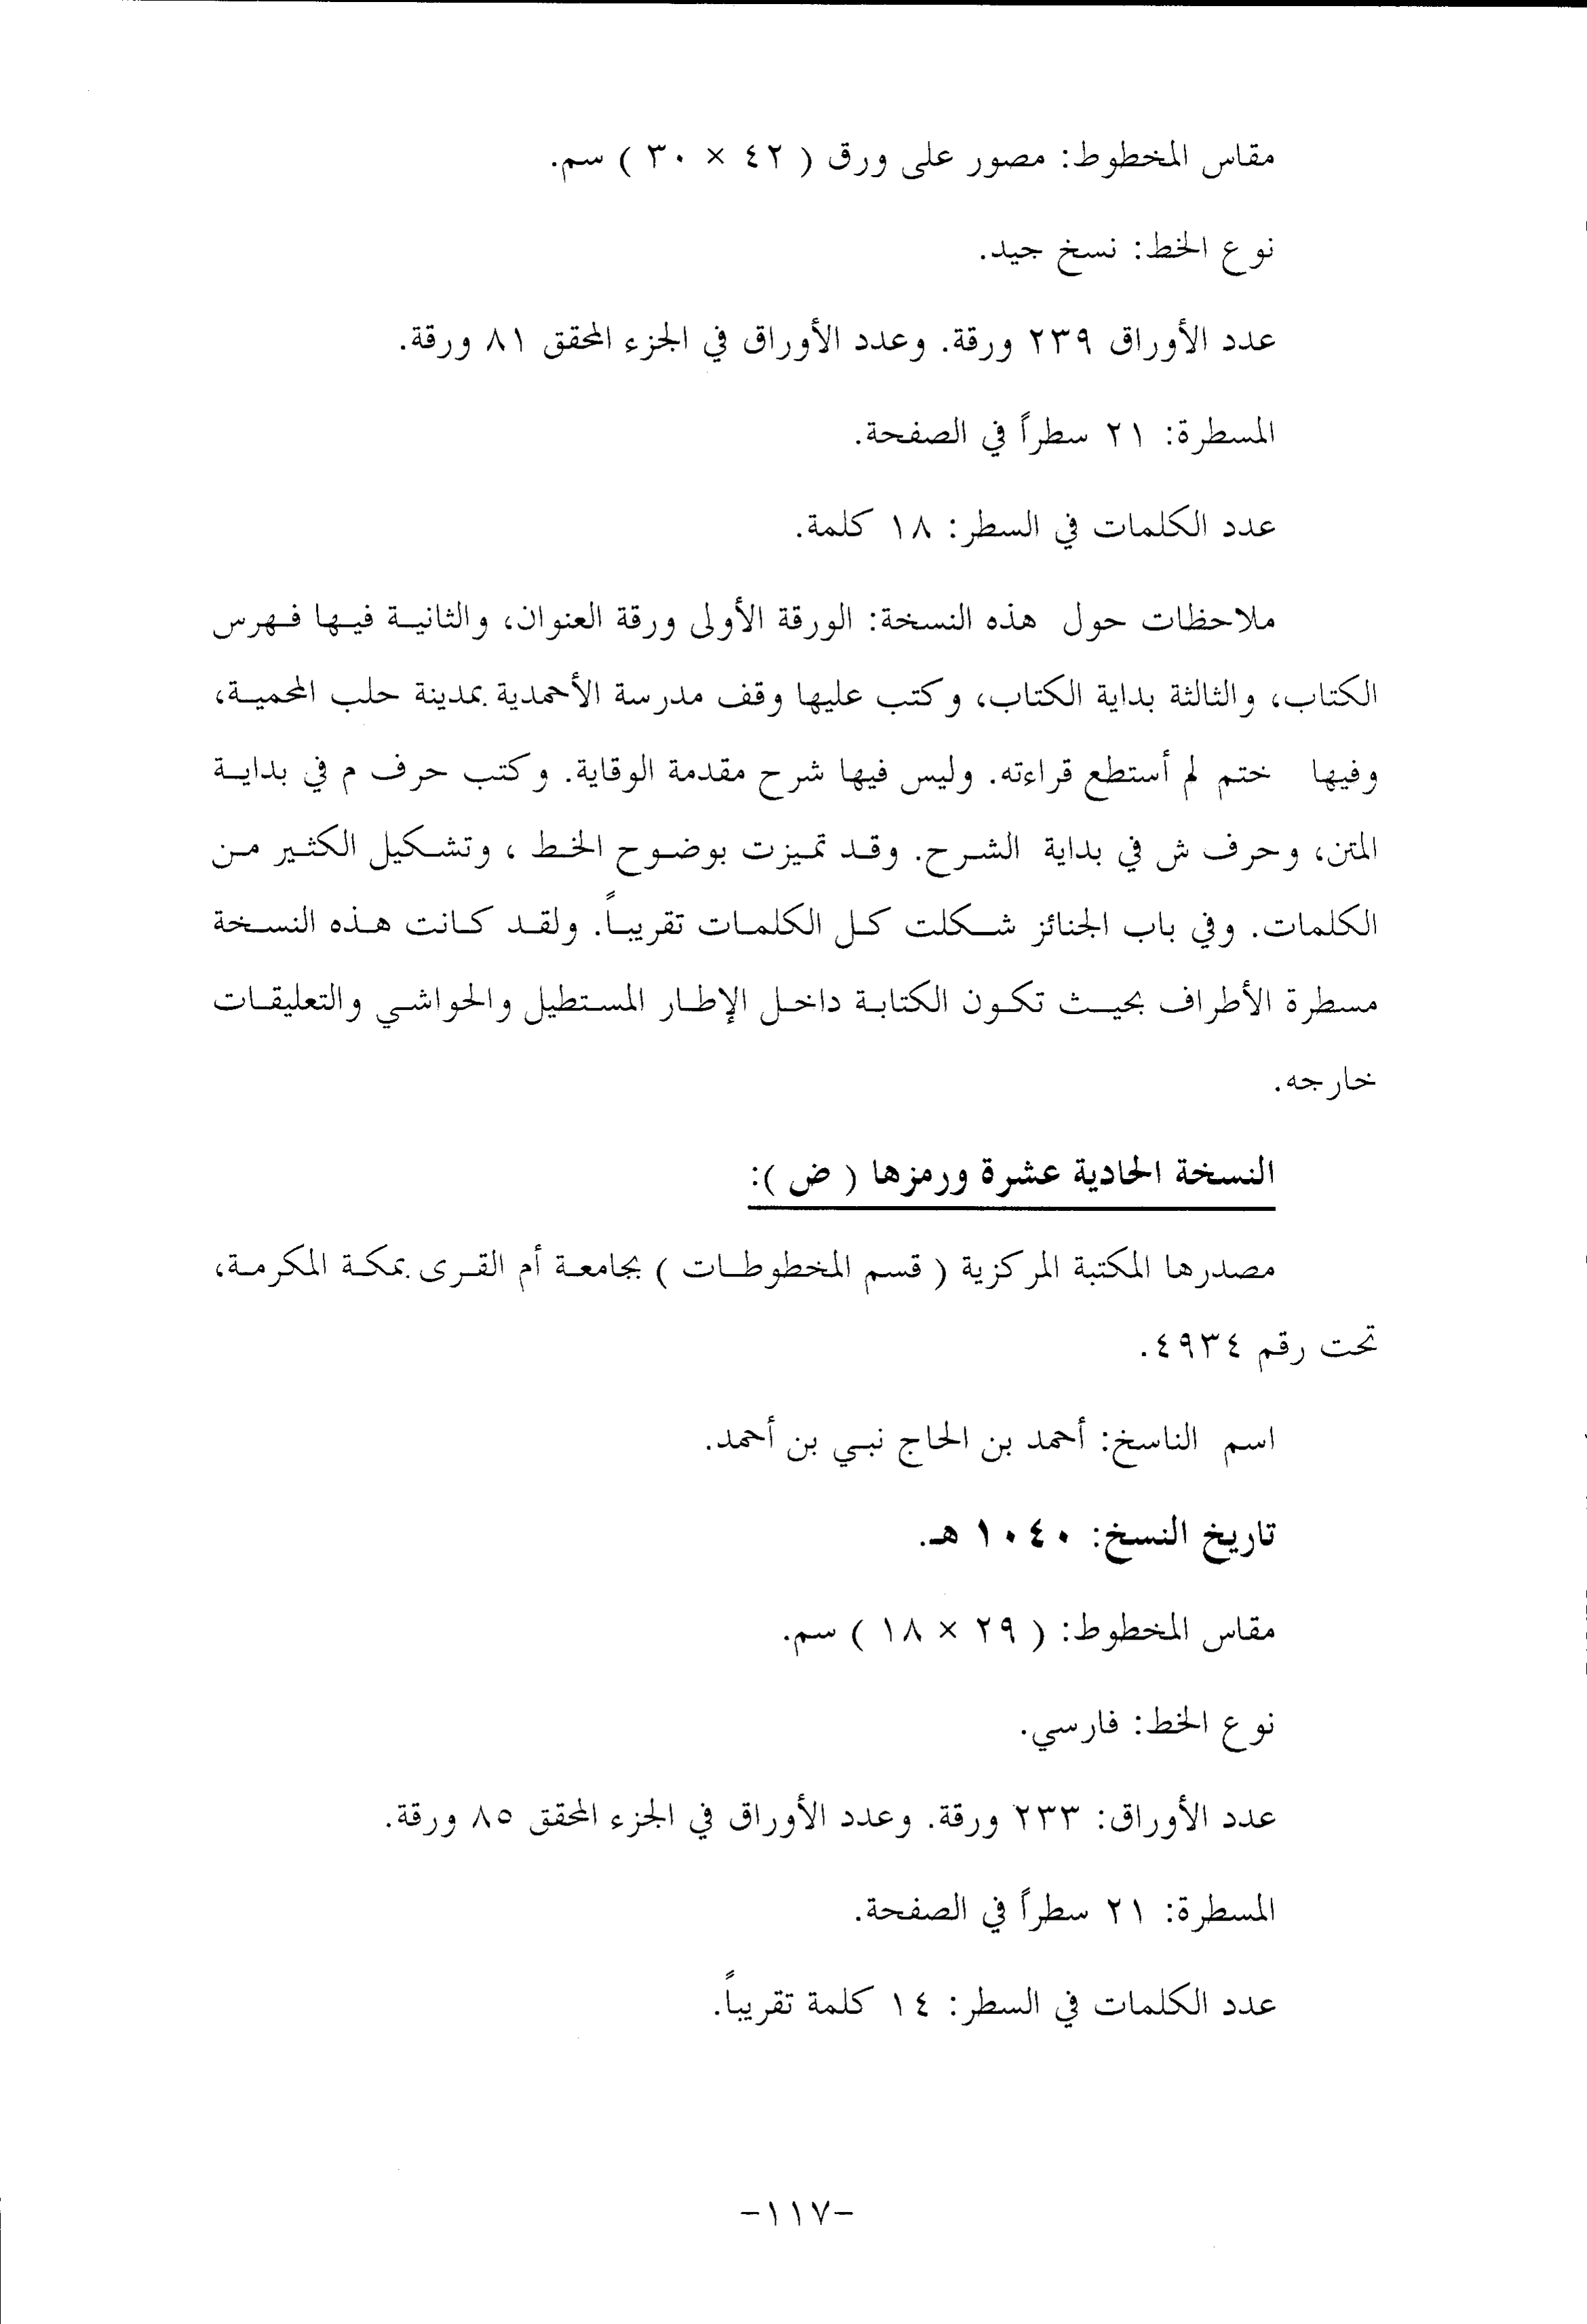 مقاس المخطوط: مصور على ورق ( ٤٢ × ٣٠ ) سم.
نوع الخط: نسخ جيد.
عدد الأوراق ٢٣٩ ورقة. وعدد الأوراق في الجزء المحقق ٨١ ورقة.
المسطرة: ٢١ سطراً في الصفحة.
عدد الكلمات في السطر: ١٨ كلمة.
ملاحظات حول هذه النسخة: الورقة الأولى ورقة العنوان، والثانية فيها فهرس
الكتاب، والثالثة بداية الكتاب، وكتب عليها وقف مدرسة الأحمدية بمدينة حلب المحمية،
وفيها ختم لم أستطع قراءته. وليس فيها شرح مقدمة الوقاية. وكتب حرف م في بداية
المتن، وحرف ش في بداية الشرح. وقد تميزت بوضوح الخط ، وتشكيل الكثير من
الكلمات. وفي باب الجنائز شكلت كل الكلمات تقريباً. ولقد كانت هذه النسخة
مسطرة الأطراف بحيث تكون الكتابة داخل الإطار المستطيل والحواشي والتعليقات
خارجه.
النسخة الحادية عشرة ورمزها ( ض ):
مصدرها المكتبة المركزية ( قسم المخطوطات ) بجامعة أم القرى بمكة المكرمة،
تحت رقم ٤٩٣٤.
اسم الناسخ: أحمد بن الحاج نبي بن أحمد.
تاريخ النسخ: ١٠٤٠ هـ.
مقاس المخطوط: ( ٢٩ × ١٨ ) سم.
نوع الخط: فارسي.
عدد الأوراق: ٢٣٣ ورقة. وعدد الأوراق في الجزء المحقق ٨٥ ورقة.
المسطرة: ٢١ سطراً في الصفحة.
عدد الكلمات في السطر: ١٤ كلمة تقريباً.
-١١٧-